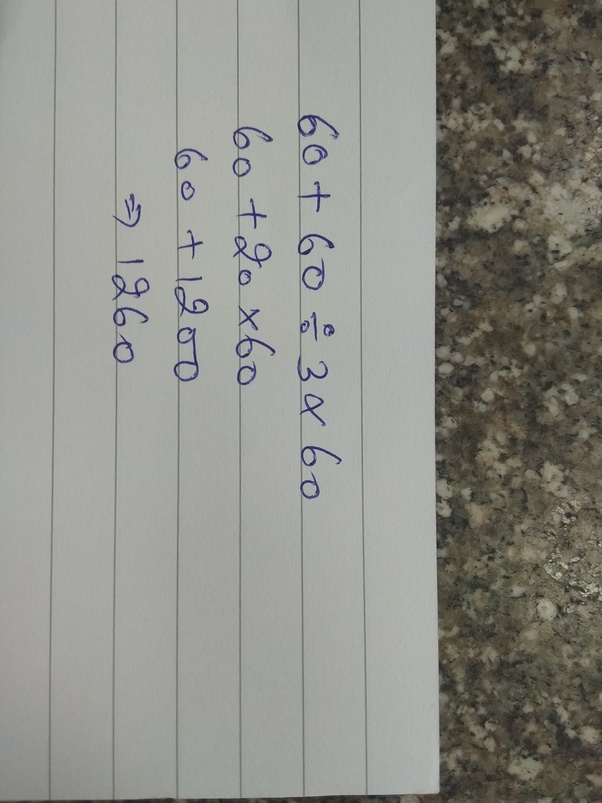 60 + 60 ÷ 3 × 60
60 + 20 × 60
60 + 1200
⇒ 1260